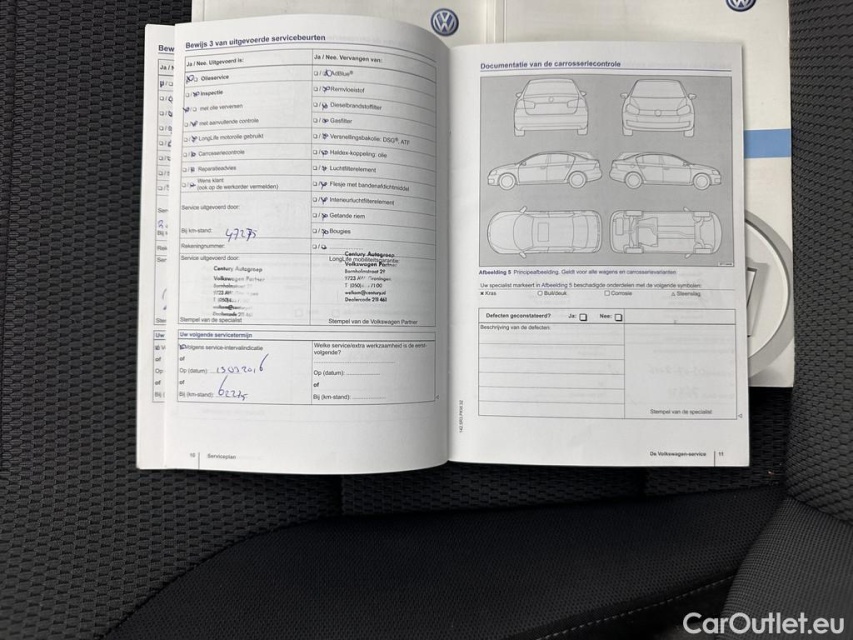 Bewijs 3 van uitgevoerde servicebeurten
Ja / Nee. Uitgevoerd is:
Olieservice
Inspectie
met olie verversen
met aanvullende controle
LongLife motorolie gebruikt
Carrosseriecontrole
Reparatieadvies
Wens klant
(ook op de werkorder vermelden)
Service uitgevoerd door:
Bij km-stand: 47275
Rekeningnummer:
Service uitgevoerd door:
Century Autogroep
Volkswagen Partner
Stempel van de specialist
Ja / Nee. Vervangen van:
AdBlue®
Remvloeistof
Dieselbrandstoffilter
Gasfilter
Versnellingsbakolie: DSG®, ATF
Haldex-koppeling: olie
Luchtfilterelement
Flesje met bandenafdichtmiddel
Interieurluchtfilterelement
Getande riem
Bougies
Century Autogroep
LongLife mobiliteitsgarantie:
Volkswagen Partner
Bornholmstraat 29
Dealercode 211 461
Stempel van de Volkswagen Partner
Uw volgende servicetermijn
Volgens service-intervalindicatie
of
Op (datum):
of
Bij (km-stand): 62275
Welke service/extra werkzaamheid is de eerst
volgende?
Op (datum):
of
Bij (km-stand):
10 Serviceplan
Documentatie van de carrosseriecontrole
Afbeelding 5 Principeafbeelding. Geldt voor alle wagens en carrosserievarianten
Uw specialist markeert in Afbeelding 5 beschadigde onderdelen met de volgende symbolen:
Kras Buil/deuk Corrosie Steenslag
Defecten geconstateerd? Ja: Nee:
Beschrijving van de defecten:
Stempel van de specialist
De Volkswagen-service 11
CarOutlet.eu